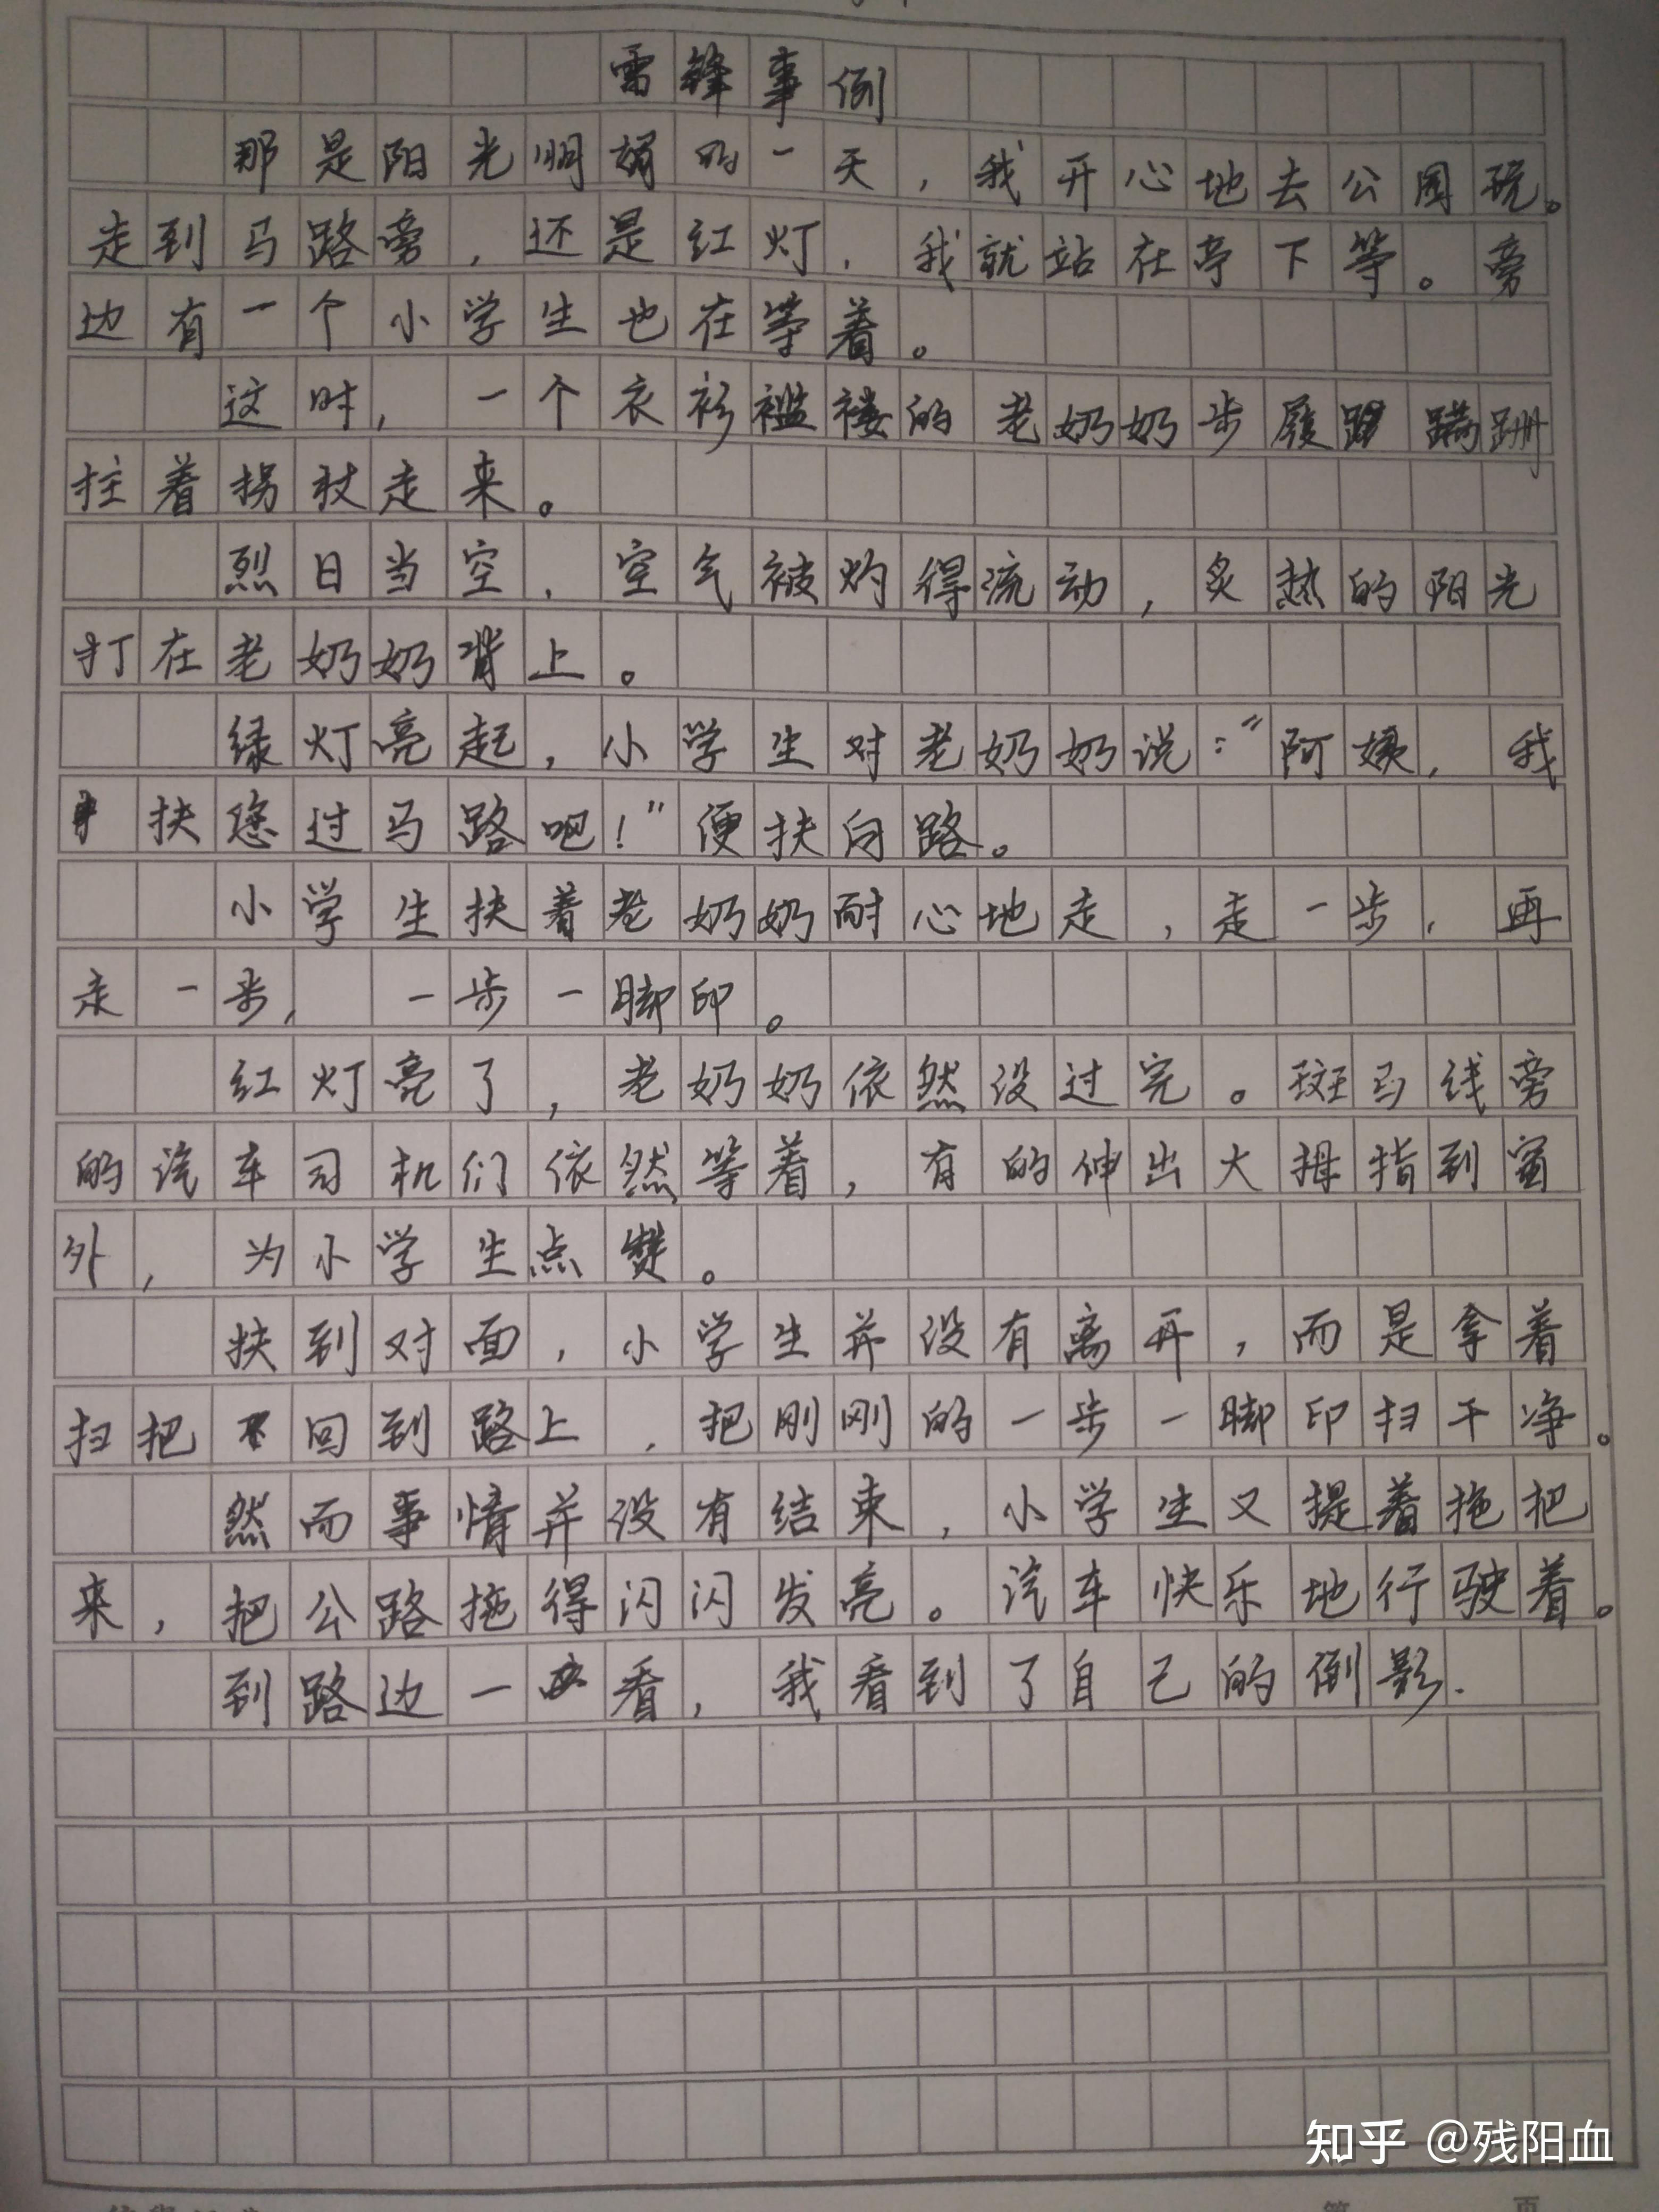 雷锋事例
那是阳光明媚的一天，我开心地去公园玩。
走到马路旁，还是红灯，我就站在亭下等。旁
边有一个小学生也在等着。
这时，一个衣衫褴褛的老奶奶步履蹒跚
拄着拐杖走来。
烈日当空，空气被灼得流动，炙热的阳光
打在老奶奶背上。
绿灯亮起，小学生对老奶奶说："阿姨，我
扶您过马路吧！"便扶向路。
小学生扶着老奶奶耐心地走，走一步，再
走一步，一步一脚印。
红灯亮了，老奶奶依然没过完。斑马线旁
的汽车司机们依然等着，有的伸出大拇指到窗
外，为小学生点赞。
扶到对面，小学生并没有离开，而是拿着
扫把回到路上，把刚刚的一步一脚印扫干净。
然而事情并没有结束，小学生又提着拖把
来，把公路拖得闪闪发亮。汽车快乐地行驶着。
到路边一看，我看到了自己的倒影.
知乎 @残阳血